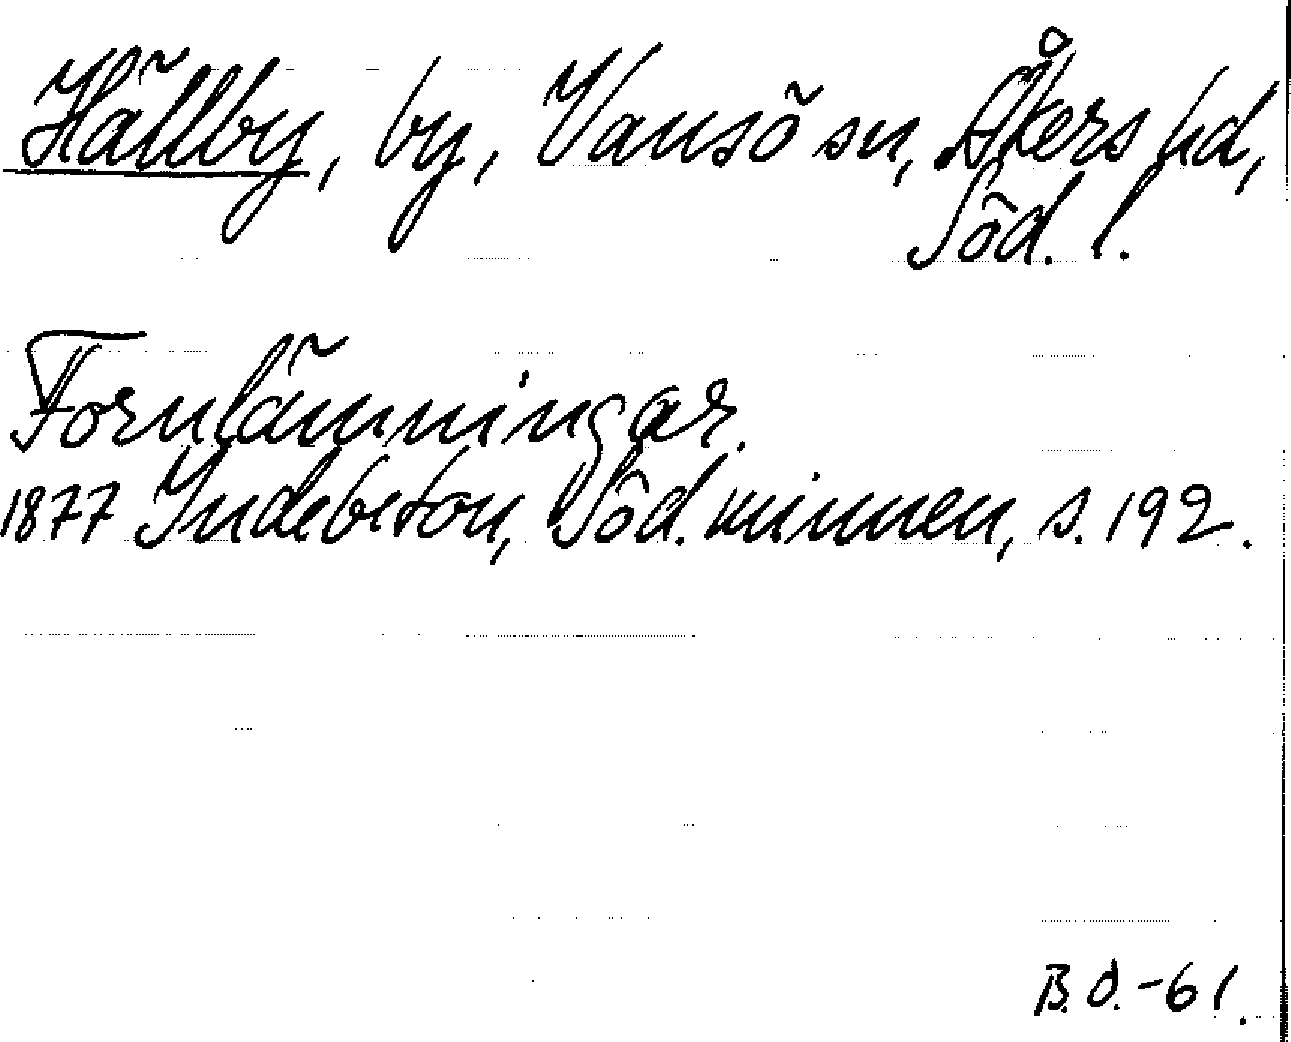 Hällby, by, Vansö sn, Åkers hd,
Söd. l.
Fornlämningar.
1877 Indebetou, Söd. minnen, s. 192.
B.d.-61.